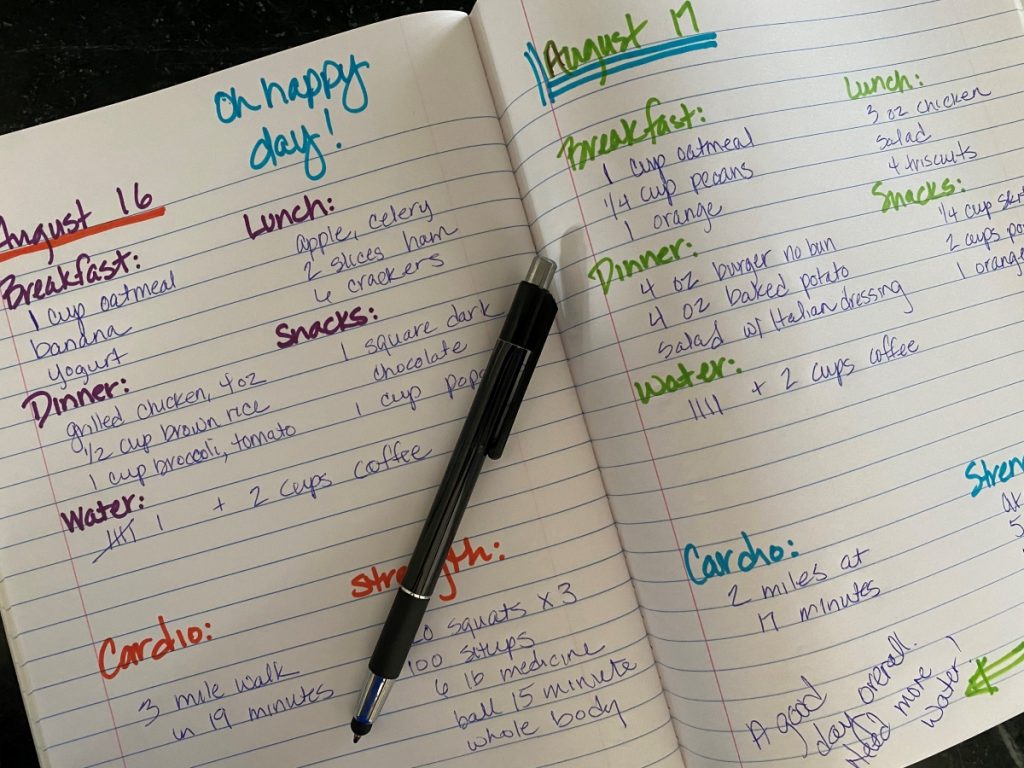 oh happy
day!
August 16
Breakfast:
1 cup oatmeal
banana
yogurt
Lunch:
apple, celery
2 slices ham
6 crackers
Dinner:
grilled chicken, 4oz
1/2 cup brown rice
1 cup broccoli, tomato
Snacks:
1 square dark
chocolate
1 cup
Water:
+ 2 cups coffee
Cardio:
3 mile walk
in 19 minutes
strength:
squats x 3
100 situps
6 lb medicine
ball 15 minute
whole body
August 17
Breakfast:
1 cup oatmeal
1/4 cup pecans
1 orange
Lunch:
3 oz chicken
salad
4 triscuits
Dinner:
4 oz burger no bun
4 oz baked potato
salad w/ Italian dressing
Snacks:
1/4 cup
2 cups
1 orange
Water:
IIII + 2 cups coffee
Cardio:
2 miles at
17 minutes
A good
day overall.
Need more
water!